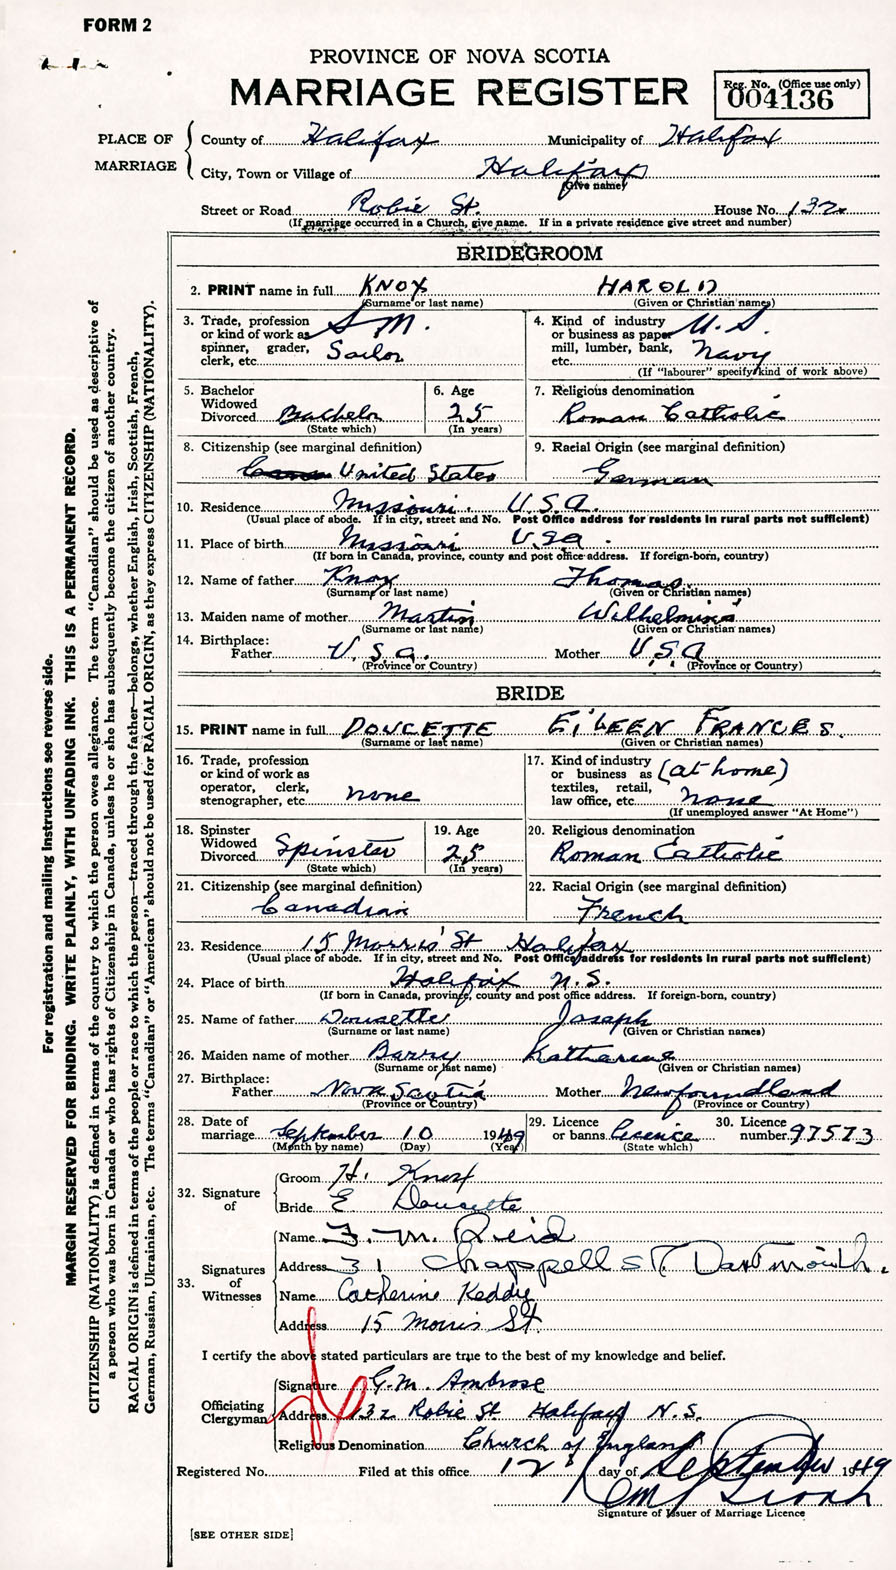 FORM 2
PROVINCE OF NOVA SCOTIA
MARRIAGE REGISTER
Reg. No. (Office use only)
004136
PLACE OF MARRIAGE
County of Halifax Municipality of Halifax
City, Town or Village of Halifax
(Give name)
Street or Road Robie St. House No. 132
(If marriage occurred in a Church, give name. If in a private residence give street and number)
BRIDEGROOM
2. PRINT name in full KNOX HAROLD
(Surname or last name) (Given or Christian names)
3. Trade, profession
or kind of work as
spinner, grader,
clerk, etc. S M. Sailor
4. Kind of industry
or business as paper
mill, lumber, bank,
etc. U.S. Navy
(If "labourer" specify kind of work above)
5. Bachelor
Widowed
Divorced Bachelor
(State which)
6. Age
25
(In years)
7. Religious denomination
Roman Catholic
8. Citizenship (see marginal definition)
United States
9. Racial Origin (see marginal definition)
German
10. Residence Missouri. U.S.A.
(Usual place of abode. If in city, street and No. Post Office address for residents in rural parts not sufficient)
11. Place of birth Missouri USA.
(If born in Canada, province, county and post office address. If foreign-born, country)
12. Name of father Knox Thomas.
(Surname or last name) (Given or Christian names)
13. Maiden name of mother Martin Wilhelmina
(Surname or last name) (Given or Christian names)
14. Birthplace:
Father U.S.A. Mother U.S.A
(Province or Country) (Province or Country)
BRIDE
15. PRINT name in full DOUCETTE EILEEN FRANCES.
(Surname or last name) (Given or Christian names)
16. Trade, profession
or kind of work as
operator, clerk,
stenographer, etc. none
17. Kind of industry
or business as
textiles, retail,
law office, etc. (at home) none
(If unemployed answer "At Home")
18. Spinster
Widowed
Divorced Spinster
(State which)
19. Age
25
(In years)
20. Religious denomination
Roman Catholic
21. Citizenship (see marginal definition)
Canadian
22. Racial Origin (see marginal definition)
French
23. Residence 15 Morris St Halifax
(Usual place of abode. If in city, street and No. Post Office address for residents in rural parts not sufficient)
24. Place of birth Halifax N.S.
(If born in Canada, province, county and post office address. If foreign-born, country)
25. Name of father Doucette Joseph
(Surname or last name) (Given or Christian names)
26. Maiden name of mother Barry Katharine
(Surname or last name) (Given or Christian names)
27. Birthplace:
Father Nova Scotia Mother Newfoundland
(Province or Country) (Province or Country)
28. Date of
marriage September 10 1949
(Month by name) (Day) (Year)
29. Licence
or banns Licence
(State which)
30. Licence
number 97573
32. Signature of
Groom H. Knox
Bride E Doucette
33. Signatures of Witnesses
Name F. M. Reid
Address 31 Chappell ST. Dartmouth.
Name Catherine Keddy
Address 15 Morris St.
I certify the above stated particulars are true to the best of my knowledge and belief.
Officiating Clergyman
Signature G.M. Ambrose
Address 132 Robie St Halifax N.S.
Religious Denomination Church of England
Registered No. Filed at this office 12 day of September 1949
Signature of Issuer of Marriage Licence
[SEE OTHER SIDE]
For registration and mailing instructions see reverse side.
MARGIN RESERVED FOR BINDING. WRITE PLAINLY, WITH UNFADING INK. THIS IS A PERMANENT RECORD.
CITIZENSHIP (NATIONALITY) is defined in terms of the country to which the person owes allegiance. The term "Canadian" should be used as descriptive of
a person who was born in Canada or who has rights of Citizenship in Canada, unless he or she has subsequently become the citizen of another country.
RACIAL ORIGIN is defined in terms of the people or race to which the person—traced through the father—belongs, whether English, Irish, Scottish, French,
German, Russian, Ukrainian, etc. The terms "Canadian" or "American" should not be used for RACIAL ORIGIN, as they express CITIZENSHIP (NATIONALITY).